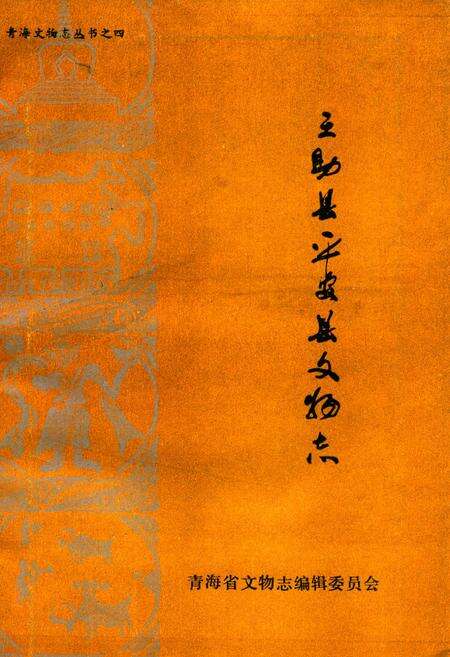 青海文物志丛书之四
互助县平安县文物志
青海省文物志编辑委员会